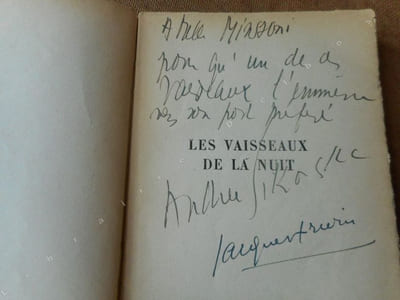 A Melle Missoni
pour qu'un de ces
vaisseaux l'emmène
vers son port préféré
LES VAISSEAUX
DE LA NUIT
André
Jacques